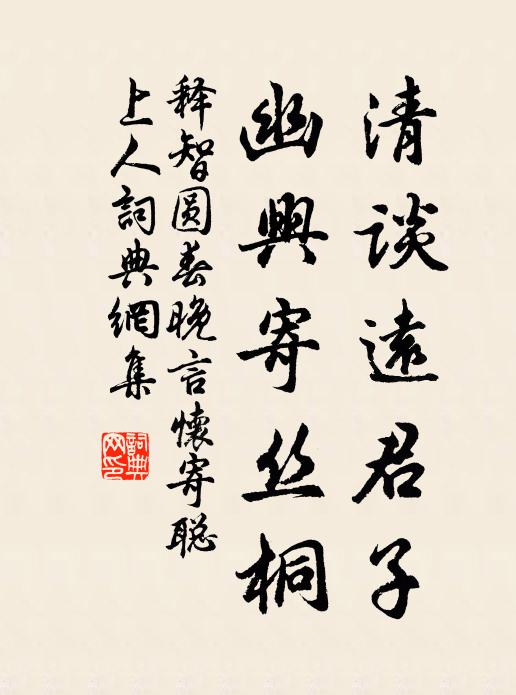 清談遠君子
幽興寄丝桐
释智圆春晚言懷寄聪
上人詞典網集
詞典网印